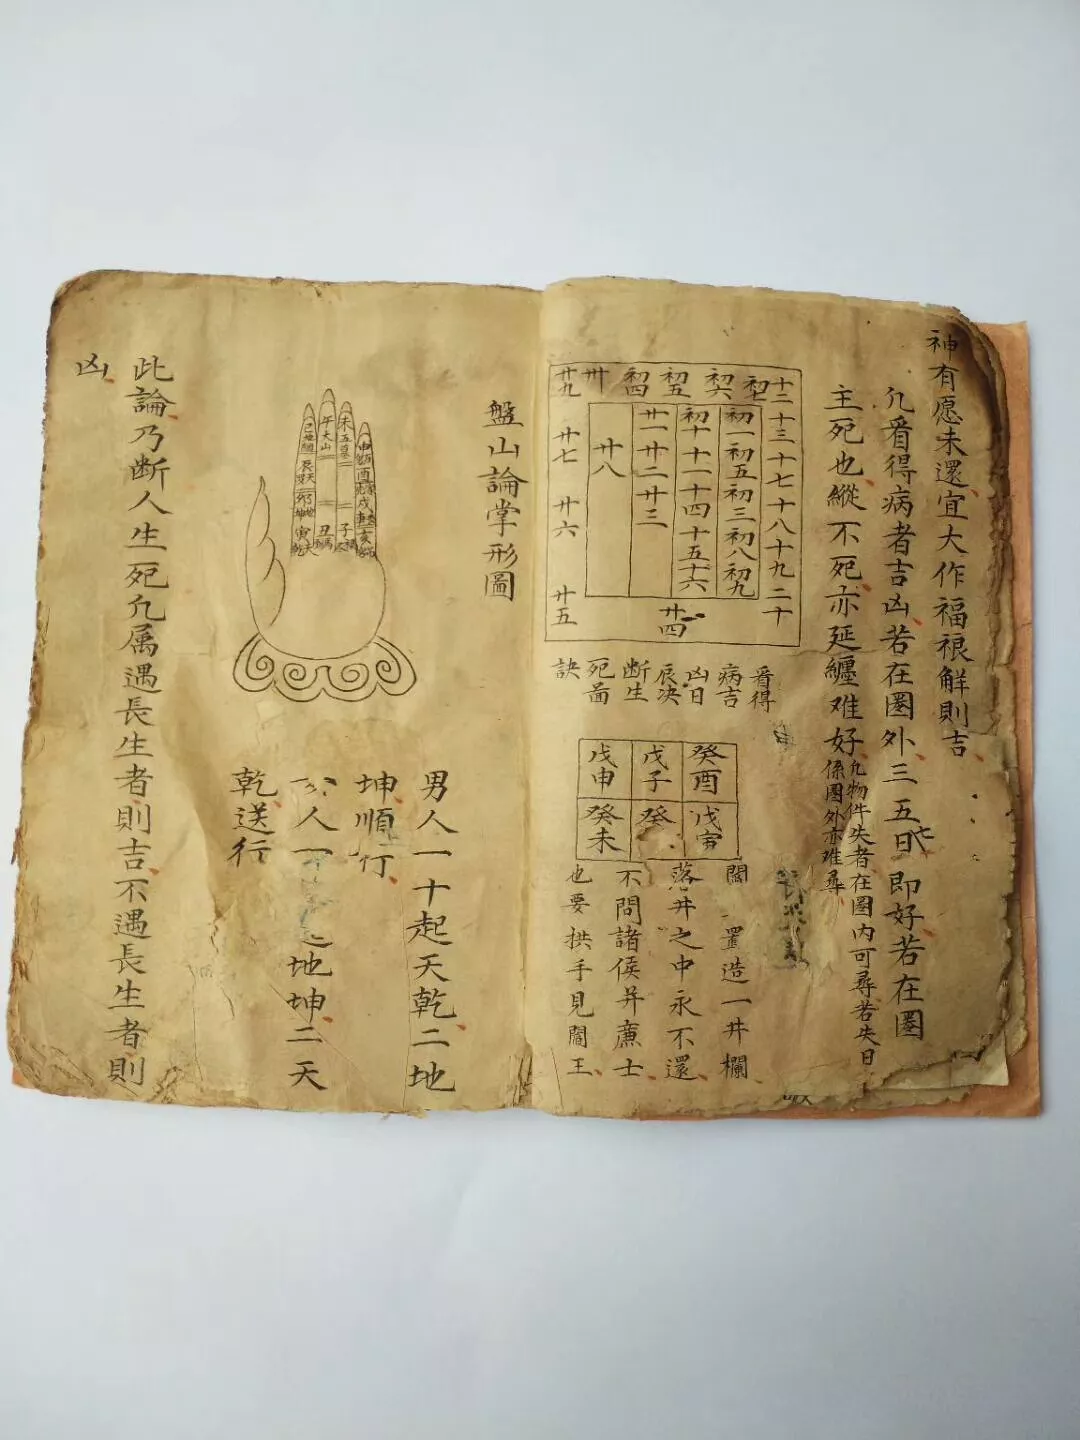 神有愿未還宜大作福禳解則吉
凢看得病者吉凶若在圏外三五七日即好若在圏
主死也縱不死亦延纏难好
凢物件失者在圏内可尋若失日
係圏外亦难尋
十二十三十七十八十九二十
初七
初六
初五
初四
卅
廿九
初一初五初三初八初九
初十十一十四十五十六
廿一廿二廿三
廿八
廿四
廿七
廿六
廿五
看得
病吉
凶日
辰决
断生
死畐
訣
癸酉
戊寅
戊子
癸
戊申
癸未
閻置造一井欄
落井之中永不還
不問諸侯并亷士
也要拱手見閻王
盤山論掌形圖
午大山
丑
子
寅
男人一十起天乾二地
坤順行
人一地坤二天
乾送行
此論乃断人生死凢属遇長生者則吉不遇長生者則
凶